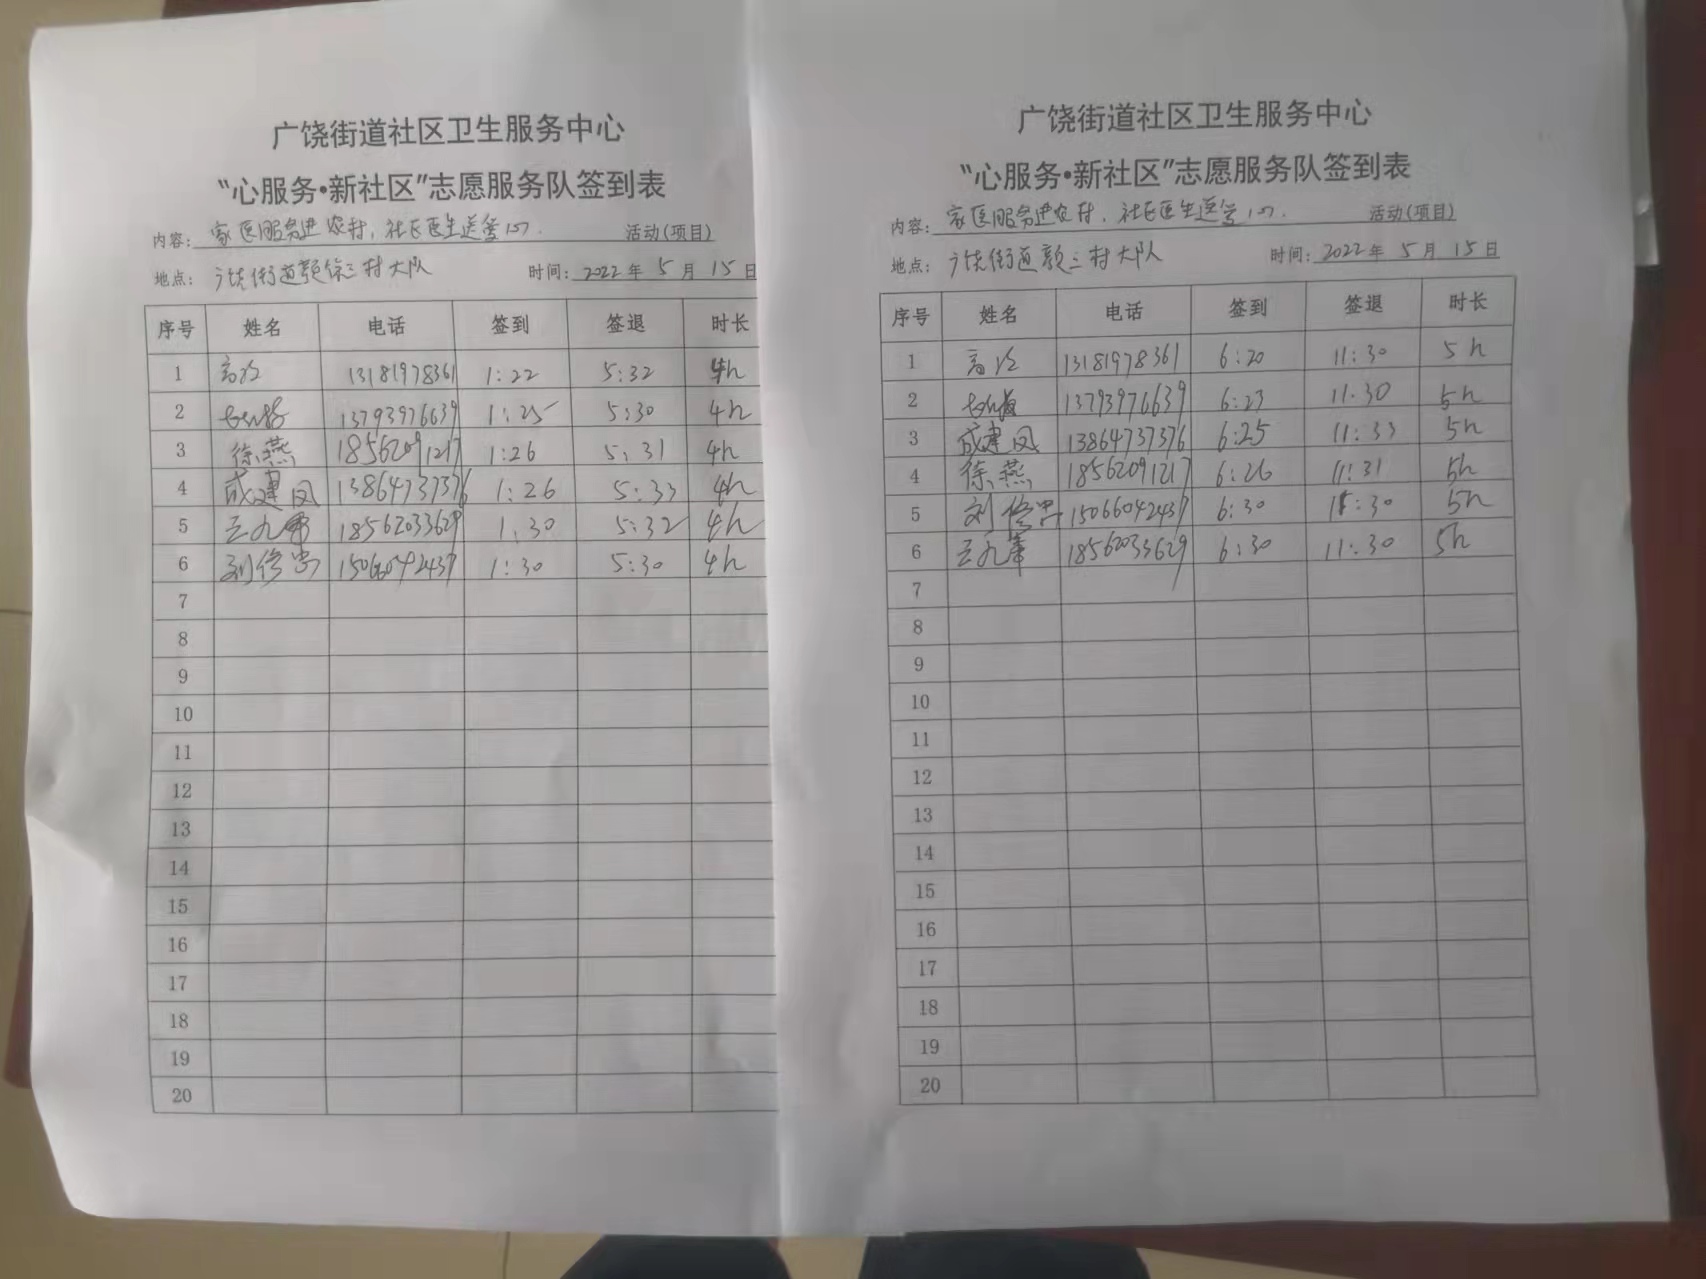 广饶街道社区卫生服务中心
“心服务·新社区”志愿服务队签到表
内容：家医服务进农村，社区医生送爱心. 活动(项目)
地点：广饶街道颜徐三村大队 时间：2022年 5月 15日
序号 姓名 电话 签到 签退 时长
1 高冷 13181978361 1:22 5:32 4h
2 13793976639 1:25 5:30 4h
3 徐燕 18562091217 1:26 5:31 4h
4 成建凤 13864737376 1:26 5:33 4h
5 18562033629 1:30 5:32 4h
6 刘修忠 15066042437 1:30 5:30 4h
7
8
9
10
11
12
13
14
15
16
17
18
19
20
广饶街道社区卫生服务中心
“心服务·新社区”志愿服务队签到表
内容：家医服务进农村，社区医生送爱心. 活动(项目)
地点：广饶街道颜三村大队 时间：2022年 5月 15日
序号 姓名 电话 签到 签退 时长
1 高冷 13181978361 6:20 11:30 5h
2 13793976639 6:23 11:30 5h
3 成建凤 13864737376 6:25 11:33 5h
4 徐燕 18562091217 6:26 11:31 5h
5 刘修忠 15066042437 6:30 11:30 5h
6 18562033629 6:30 11:30 5h
7
8
9
10
11
12
13
14
15
16
17
18
19
20